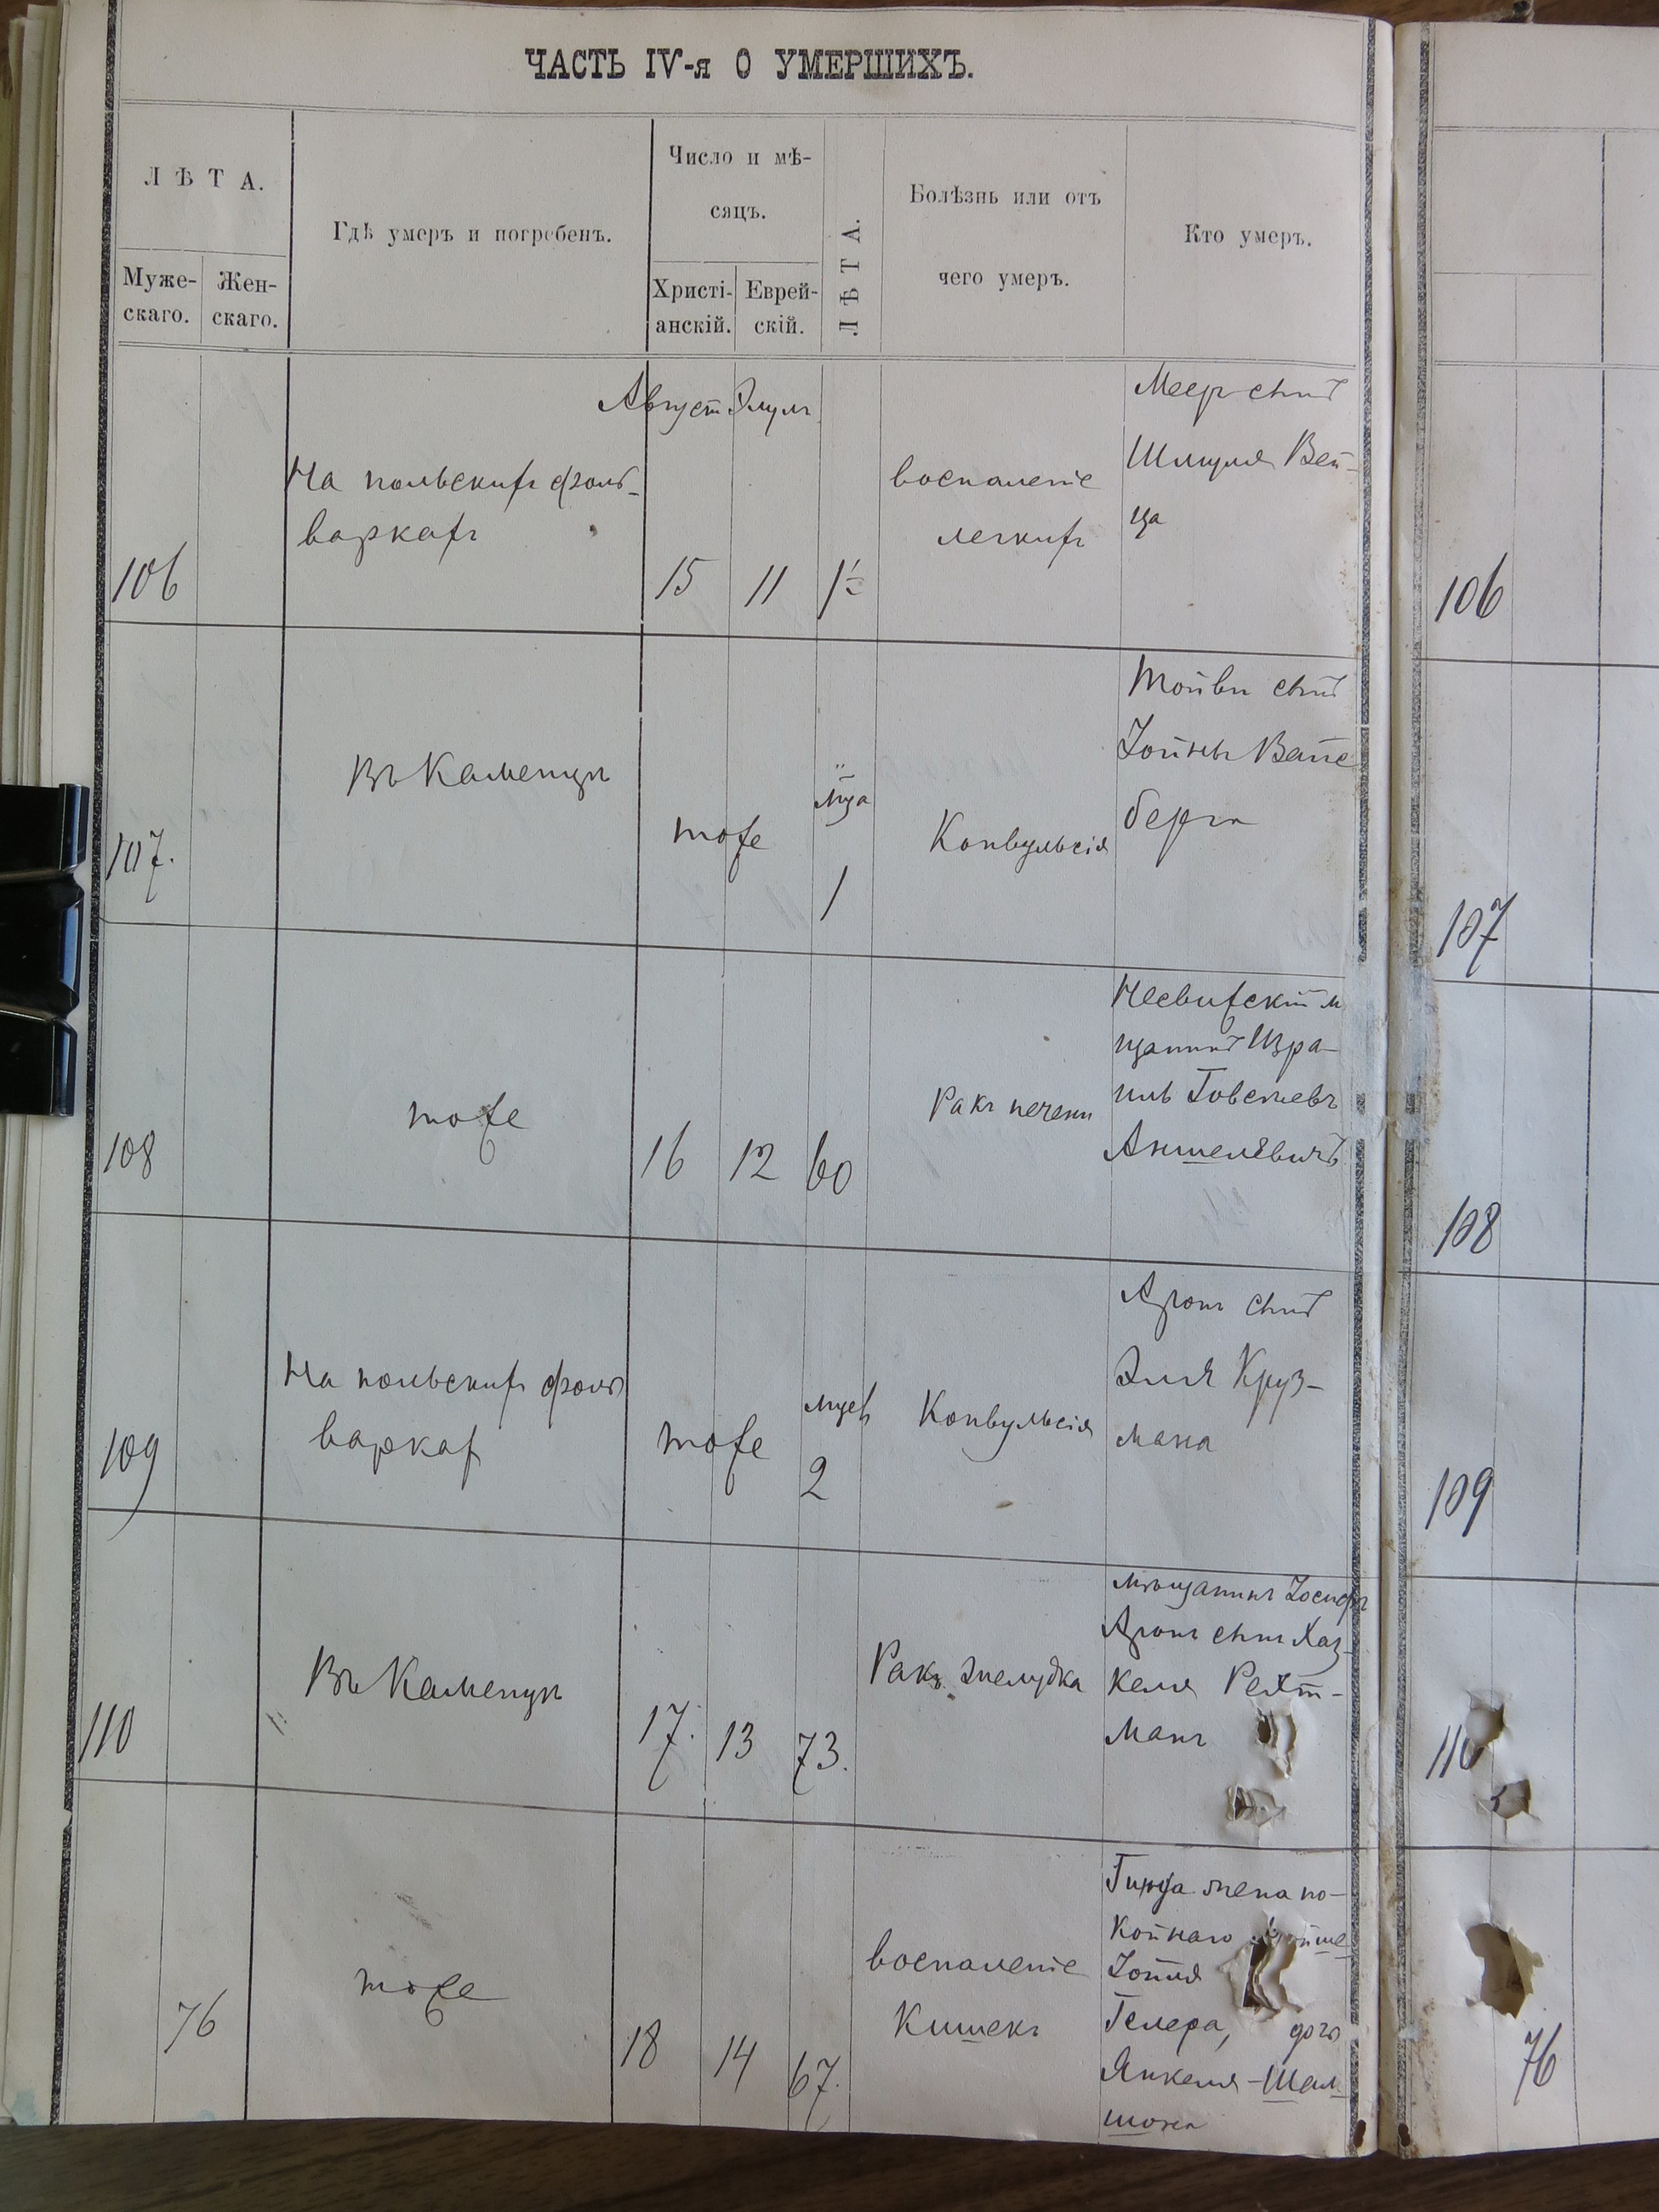 ЧАСТЬ IV-я О УМЕРШИХЪ.
ЛѢТА.
Муже-
скаго.
Жен-
скаго.
Гдѣ умеръ и погребенъ.
Число и мѣ-
сяцъ.
Христі-
анскій.
Еврей-
скій.
ЛѢТА.
Болѣзнь или отъ
чего умеръ.
Кто умеръ.
Август Элулъ
106
На польскихъ фоль-
варкахъ
15
11
воспаленіе
легкихъ
Меер сынъ
Шмуля Вей-
ца
106
107.
Въ Каменцѣ
тоже
мца
1
Конвульсія
Тойви сынъ
Іойны Вайс
берга
107
108
тоже
16
12
60
Ракъ печени
Несвижскій м
щанинъ Изра-
иль Говсеевъ
Аншелевичъ
108
109
На польскихъ фоль
варках
тоже
мцев
2
Конвульсія
Аронъ сынъ
Эля Круз-
мана
109
110
Въ Каменцѣ
17.
13
73.
Ракъ желудка
мѣщанинъ Іосифъ
Аронъ сынъ Хаз-
келя Рехт-
манъ
110
76
тоже
18
14
67.
воспаленіе
Кишекъ
жена по-
койнаго
Іойля
Гелера, дочь
Янкеля-Шам
шона
76